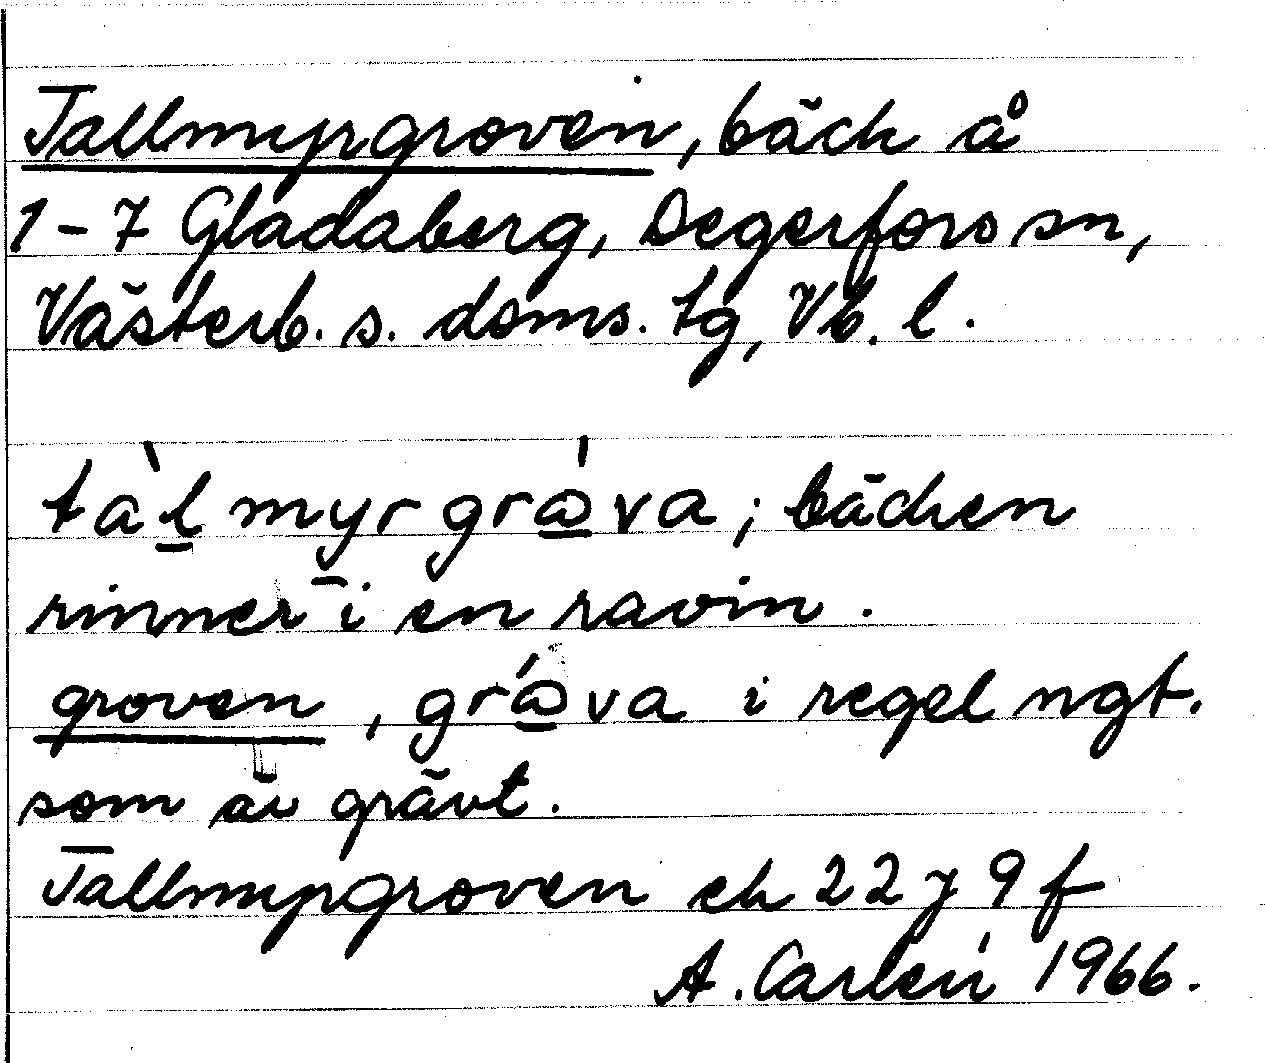 Tallmyrgroven, bäck å
1-7 Gladaberg, Degerfors sn,
Västerb. s. doms. tg, Vb. l.
tàl̲myrgrǻ̲va; bäcken
rinner i en ravin.
groven, grá̲̊va i regel ngt.
som är grävt.
Tallmyrgroven ek 22 J 9 f
A. Carlén 1966.